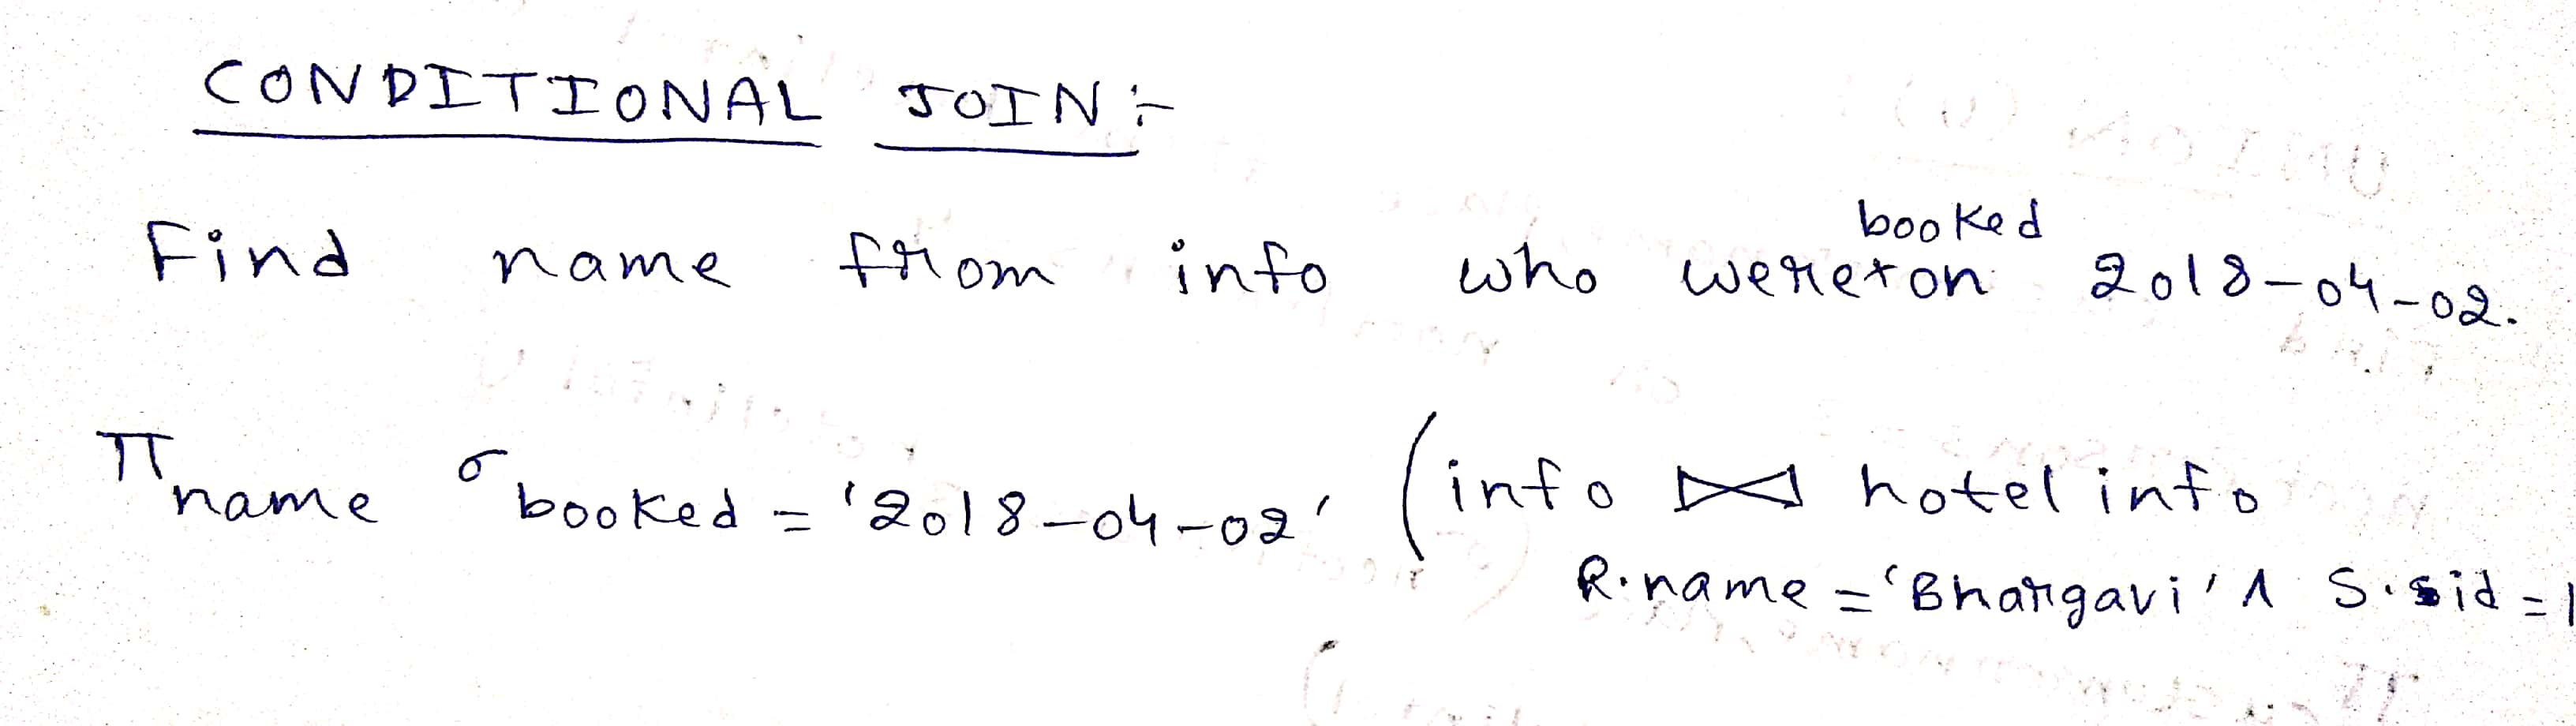 CONDITIONAL JOIN:-
Find name from info who were booked on 2018-04-02.
π name σ booked = '2018-04-02' (info ⋈ hotel info
R.name = 'Bhargavi' ∧ S.sid = 1